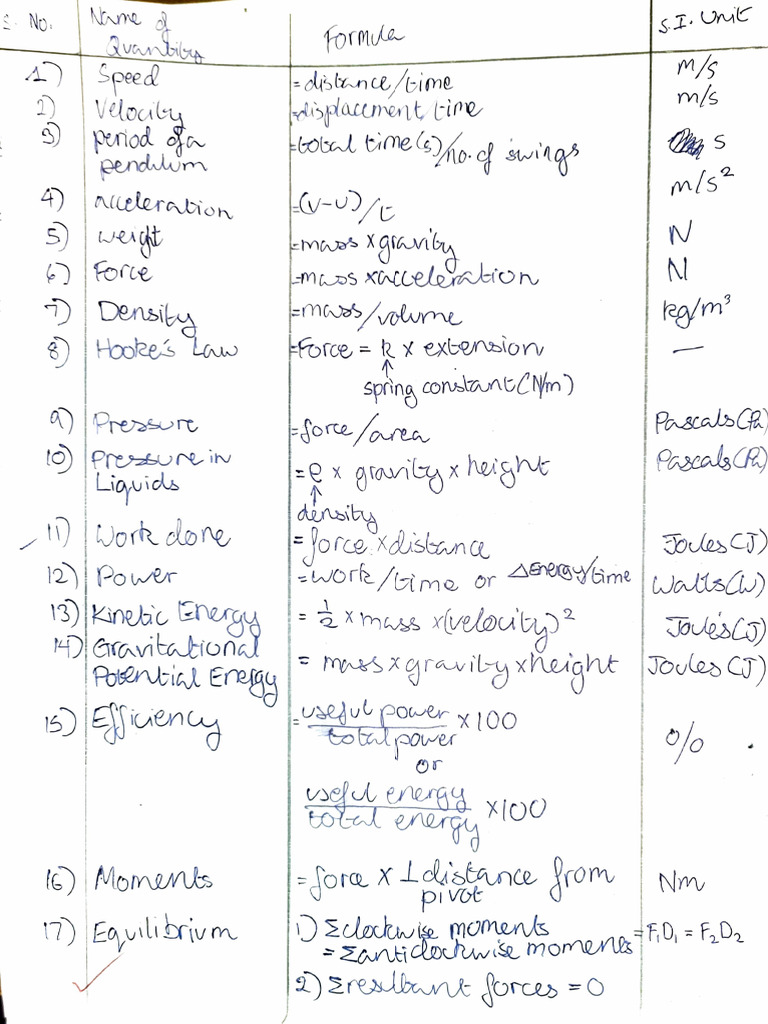 S. No. Name of Quantity Formula S.I. Unit
1) Speed = distance/time m/s
2) Velocity = displacement/time m/s
3) period of a pendulum = total time(s)/no. of swings s
4) acceleration = (v-u)/t m/s²
5) weight = mass x gravity N
6) Force = mass x acceleration N
7) Density = mass/volume kg/m³
8) Hooke's Law = Force = k x extension —
↑
spring constant (N/m)
9) Pressure = force/area Pascals (Pa)
10) Pressure in Liquids = ρ x gravity x height Pascals (Pa)
↑
density
11) Work done = force x distance Joules (J)
12) Power = work/time or ΔEnergy/time Watts (W)
13) Kinetic Energy = ½ x mass x (velocity)² Joules (J)
14) Gravitational Potential Energy = mass x gravity x height Joules (J)
15) Efficiency = useful power/total power x 100 %
or
useful energy/total energy x 100
16) Moments = force x ⊥ distance from pivot Nm
17) Equilibrium 1) Σclockwise moments = Σanticlockwise moments = F₁D₁ = F₂D₂
2) Σresultant forces = 0